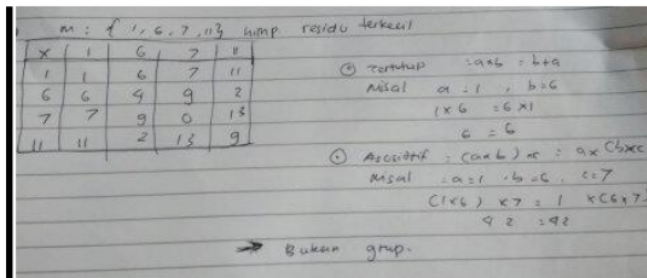 m : { 1, 6, 7, 11} himp residu terkecil
x 1 6 7 11
1 1 6 7 11
6 6 4 9 2
7 7 9 0 13
11 11 2 13 9
Tertutup : a x b = b + a
Misal a = 1 , b = 6
1 x 6 = 6 x 1
6 = 6
Asosiatif : (a x b) x c = a x (b x c
Misal : a = 1 . b = 6 . c = 7
(1 x 6) x 7 = 1 x (6 x 7)
42 = 42
→ Bukan grup.